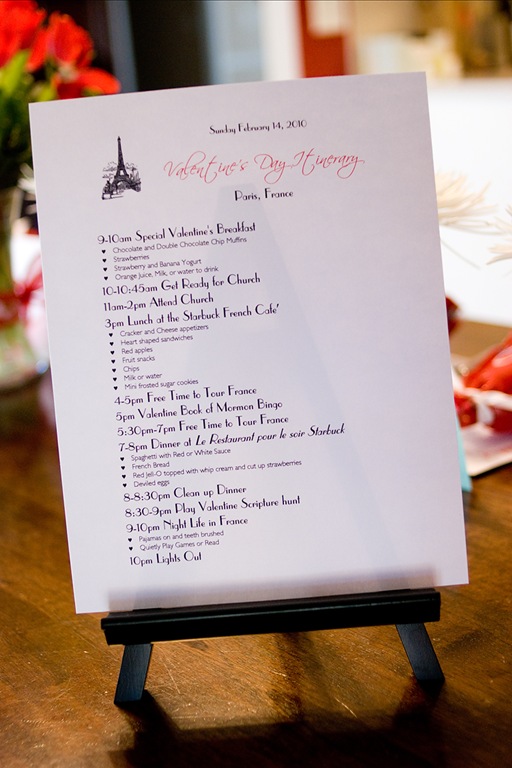 Sunday February 14, 2010
Valentine's Day Itinerary
Paris, France
9-10am Special Valentine's Breakfast
♥ Chocolate and Double Chocolate Chip Muffins
♥ Strawberries
♥ Strawberry and Banana Yogurt
♥ Orange Juice, Milk, or water to drink
10-10:45am Get Ready for Church
11am-2pm Attend Church
3pm Lunch at the Starbuck French Cafe'
♥ Cracker and Cheese appetizers
♥ Heart shaped sandwiches
♥ Red apples
♥ Fruit snacks
♥ Chips
♥ Milk or water
♥ Mini frosted sugar cookies
4-5pm Free Time to Tour France
5pm Valentine Book of Mormon Bingo
5:30pm-7pm Free Time to Tour France
7-8pm Dinner at Le Restaurant pour le soir Starbuck
♥ Spaghetti with Red or White Sauce
♥ French Bread
♥ Red Jell-O topped with whip cream and cut up strawberries
♥ Deviled eggs
8-8:30pm Clean up Dinner
8:30-9pm Play Valentine Scripture hunt
9-10pm Night Life in France
♥ Pajamas on and teeth brushed
♥ Quietly Play Games or Read
10pm Lights Out